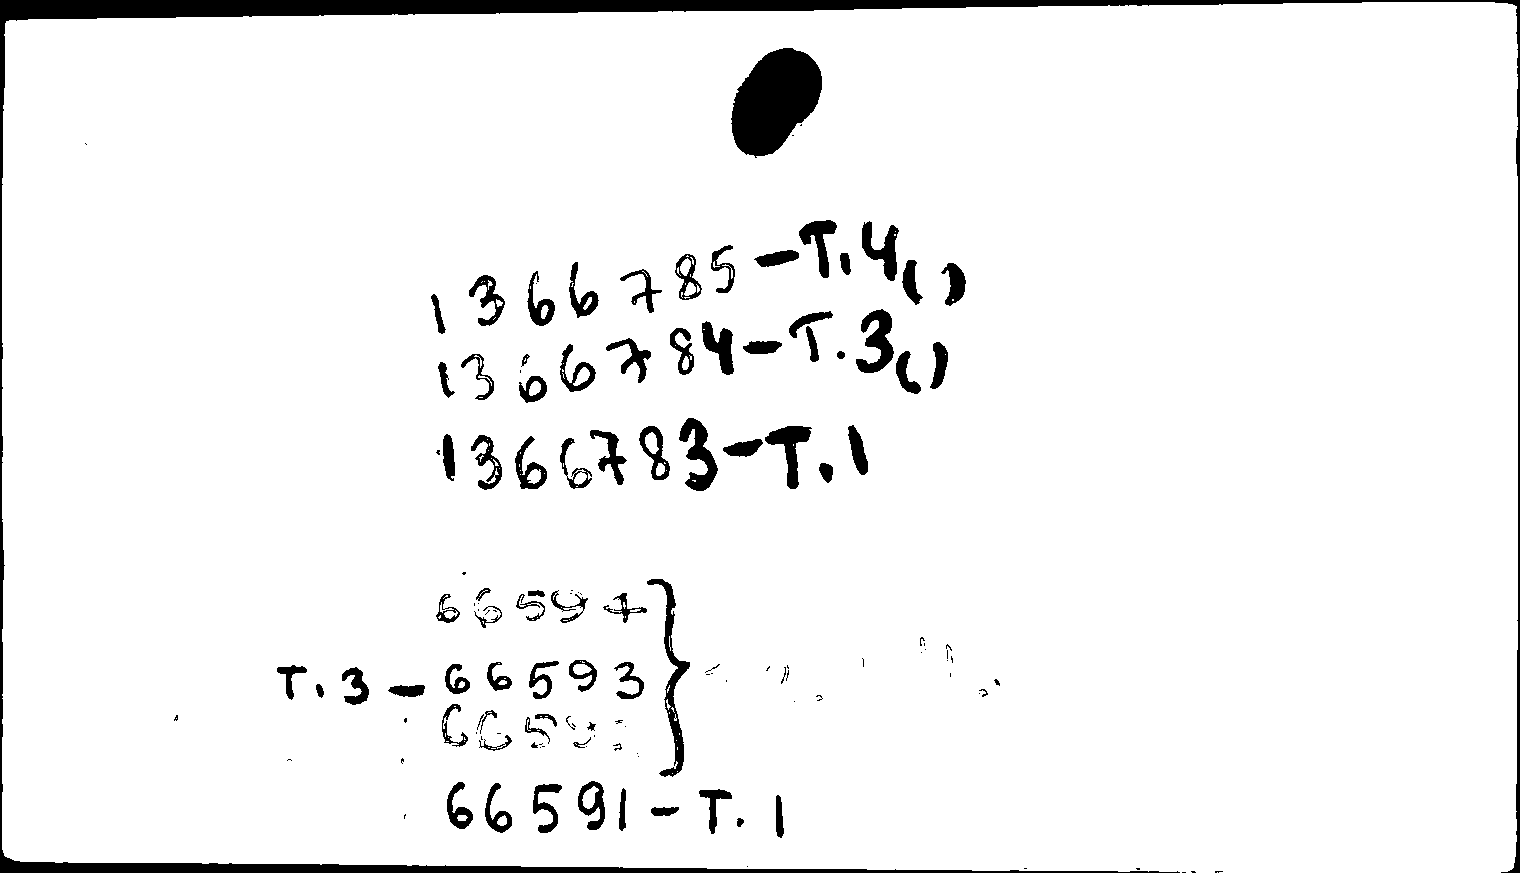 1366785-T.4()
1366784-T.3()
1366783-T.1
66594
T.3-66593
6659
66591-T.1